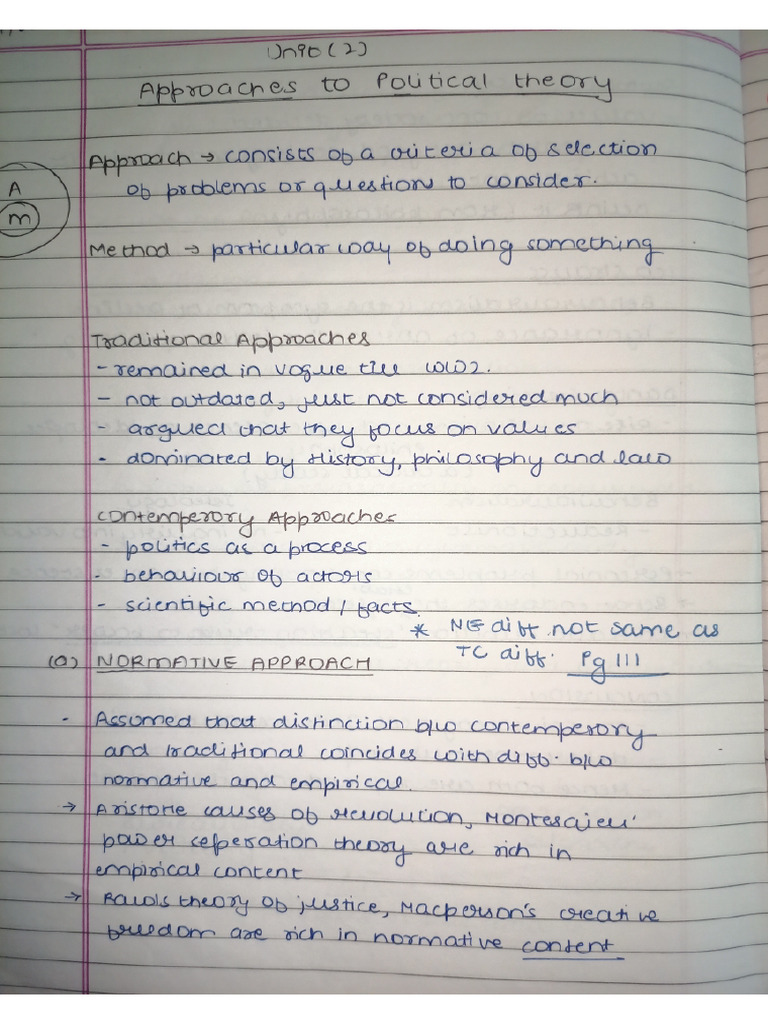 Unit (2)
Approaches to Political theory
Approach → consists of a criteria of selection
of problems or question to consider.
A
m
Method → particular way of doing something
Traditional Approaches
- remained in vogue till WW2.
- not outdated, just not considered much
- argued that they focus on values
- dominated by History, philosophy and law
Contemperory Approaches
- politics as a process
- behaviour of actors
- scientific method / facts
* NE diff. not same as
TC diff. Pg 111
(0) NORMATIVE APPROACH
- Assumed that distinction b/w contemperory
and traditional coincides with diff. b/w
normative and empirical.
→ Aristotle causes of revolution, Montesqieu'
power seperation theory are rich in
empirical content
→ Rawls theory of justice, Macperson's creative
freedom are rich in normative content